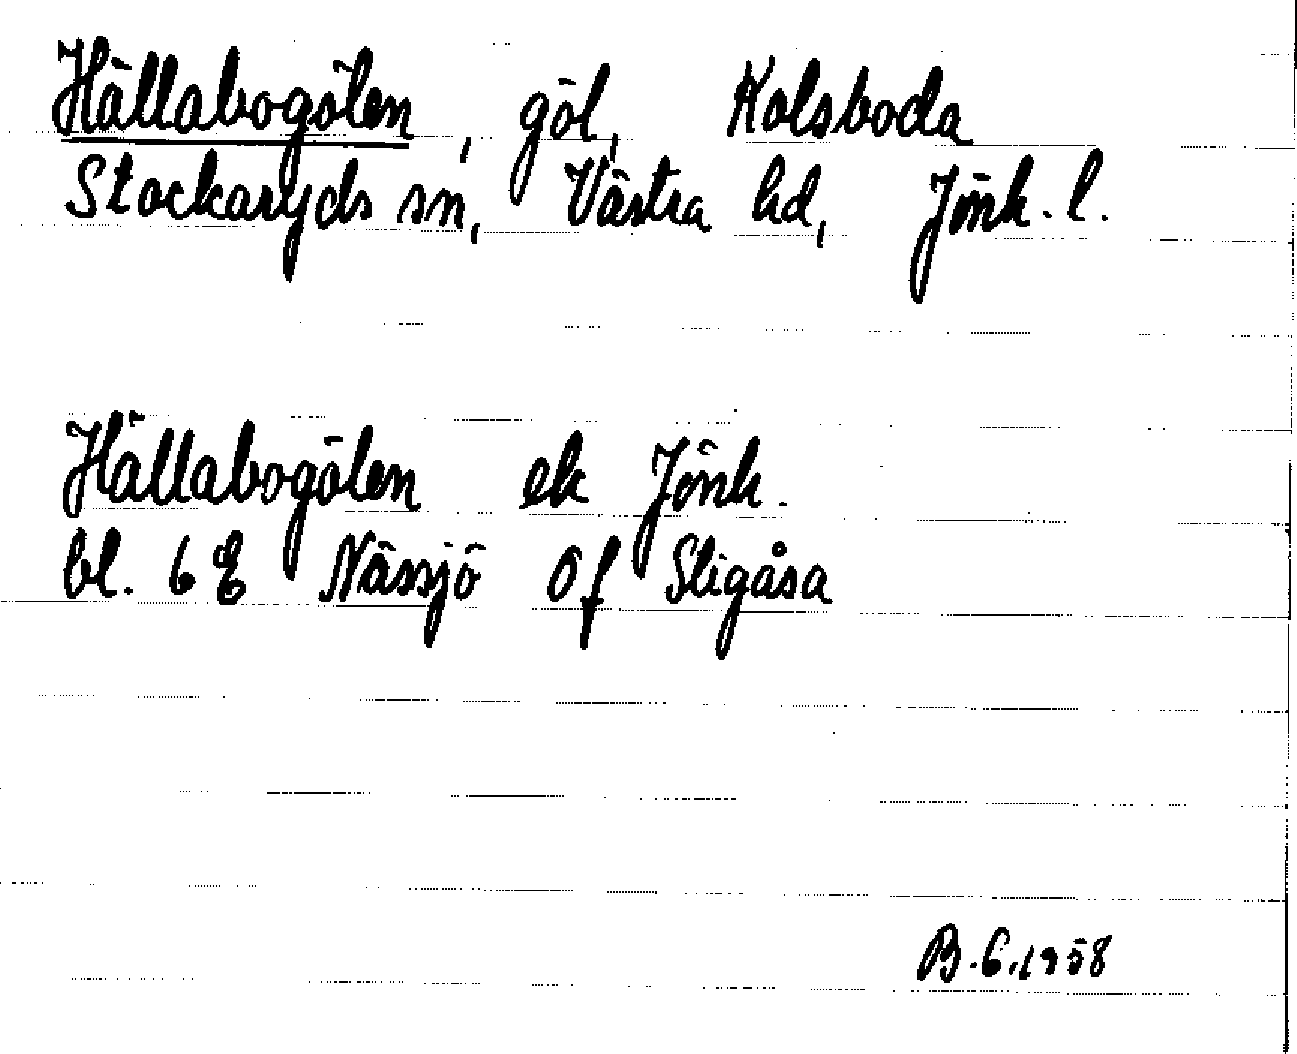 Hällabogölen, göl, Kolsboda
Stockaryds sn, Västra hd, Jönk. l.
Hällabogölen ek Jönk.
bl. 6 E Nässjö Of Stigåsa
B.C. 1958